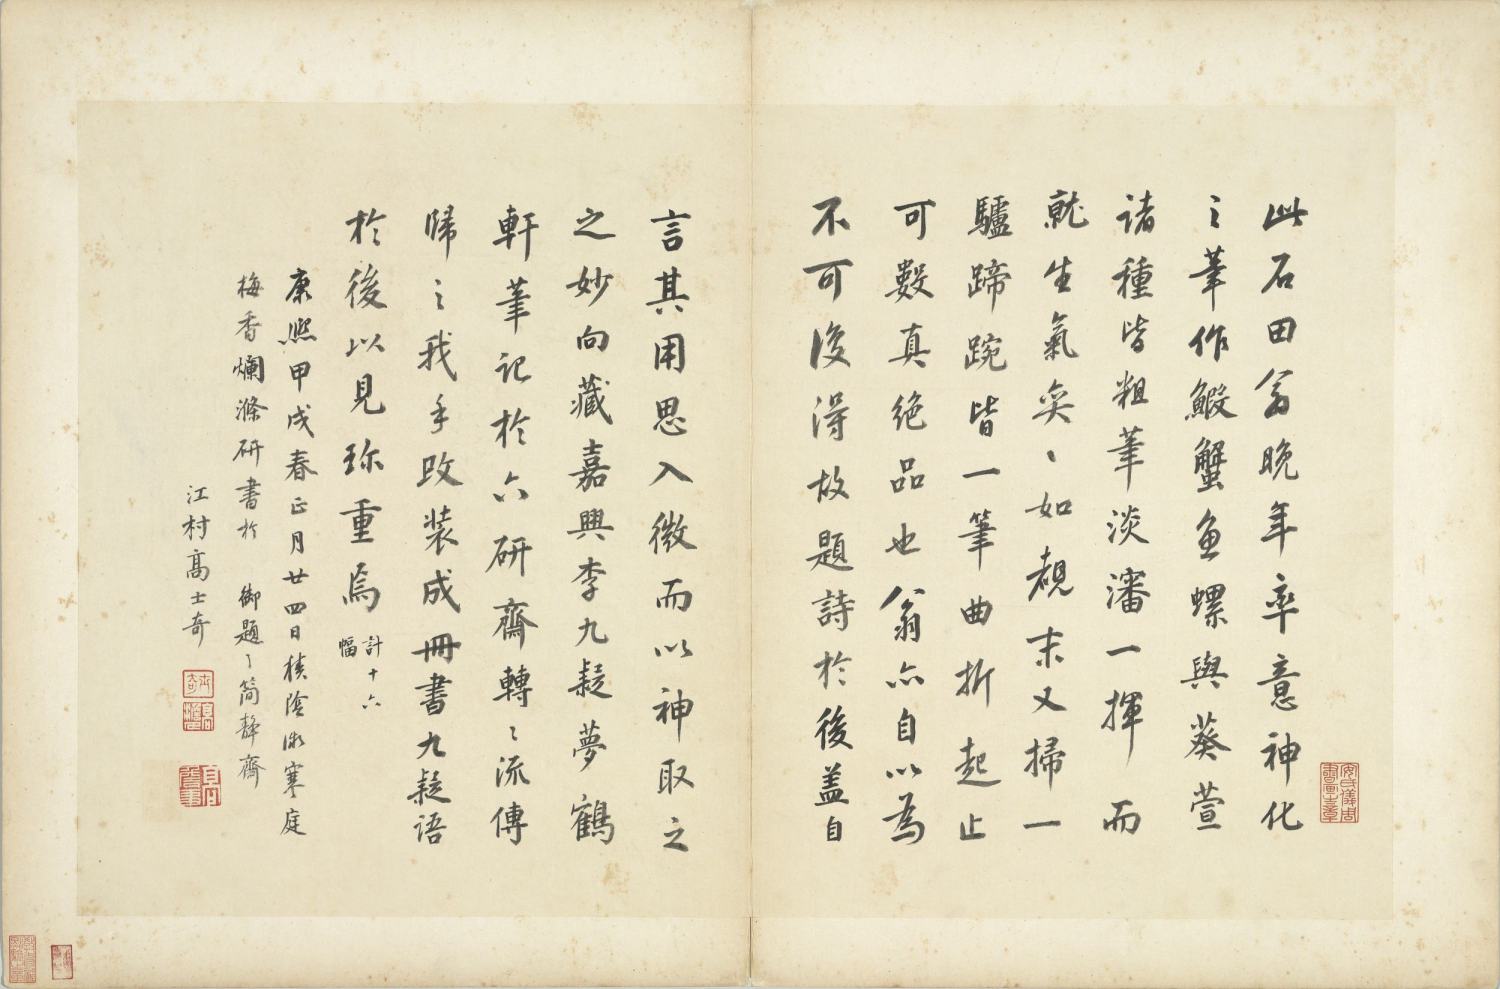 此石田翁晚年率意神化
之筆作鰕蟹魚螺與葵萱
諸種皆粗筆淡瀋一揮而
就生氣奕奕如覩末又掃一
驢蹄踠皆一筆曲折起止
可數真絕品也翁亦自以為
不可復得故題詩於後蓋自
言其用思入微而以神取之
之妙向藏嘉興李九疑夢鶴
軒筆記於六研齋轉轉流傳
歸之我手改裝成冊書九疑語
於後以見珎重焉 計十六幅
康熙甲戌春正月廿四日積陰沍寒庭
梅香爛滌研書於 御題之簡靜齋
江村高士奇
安氏儀周書畫之章